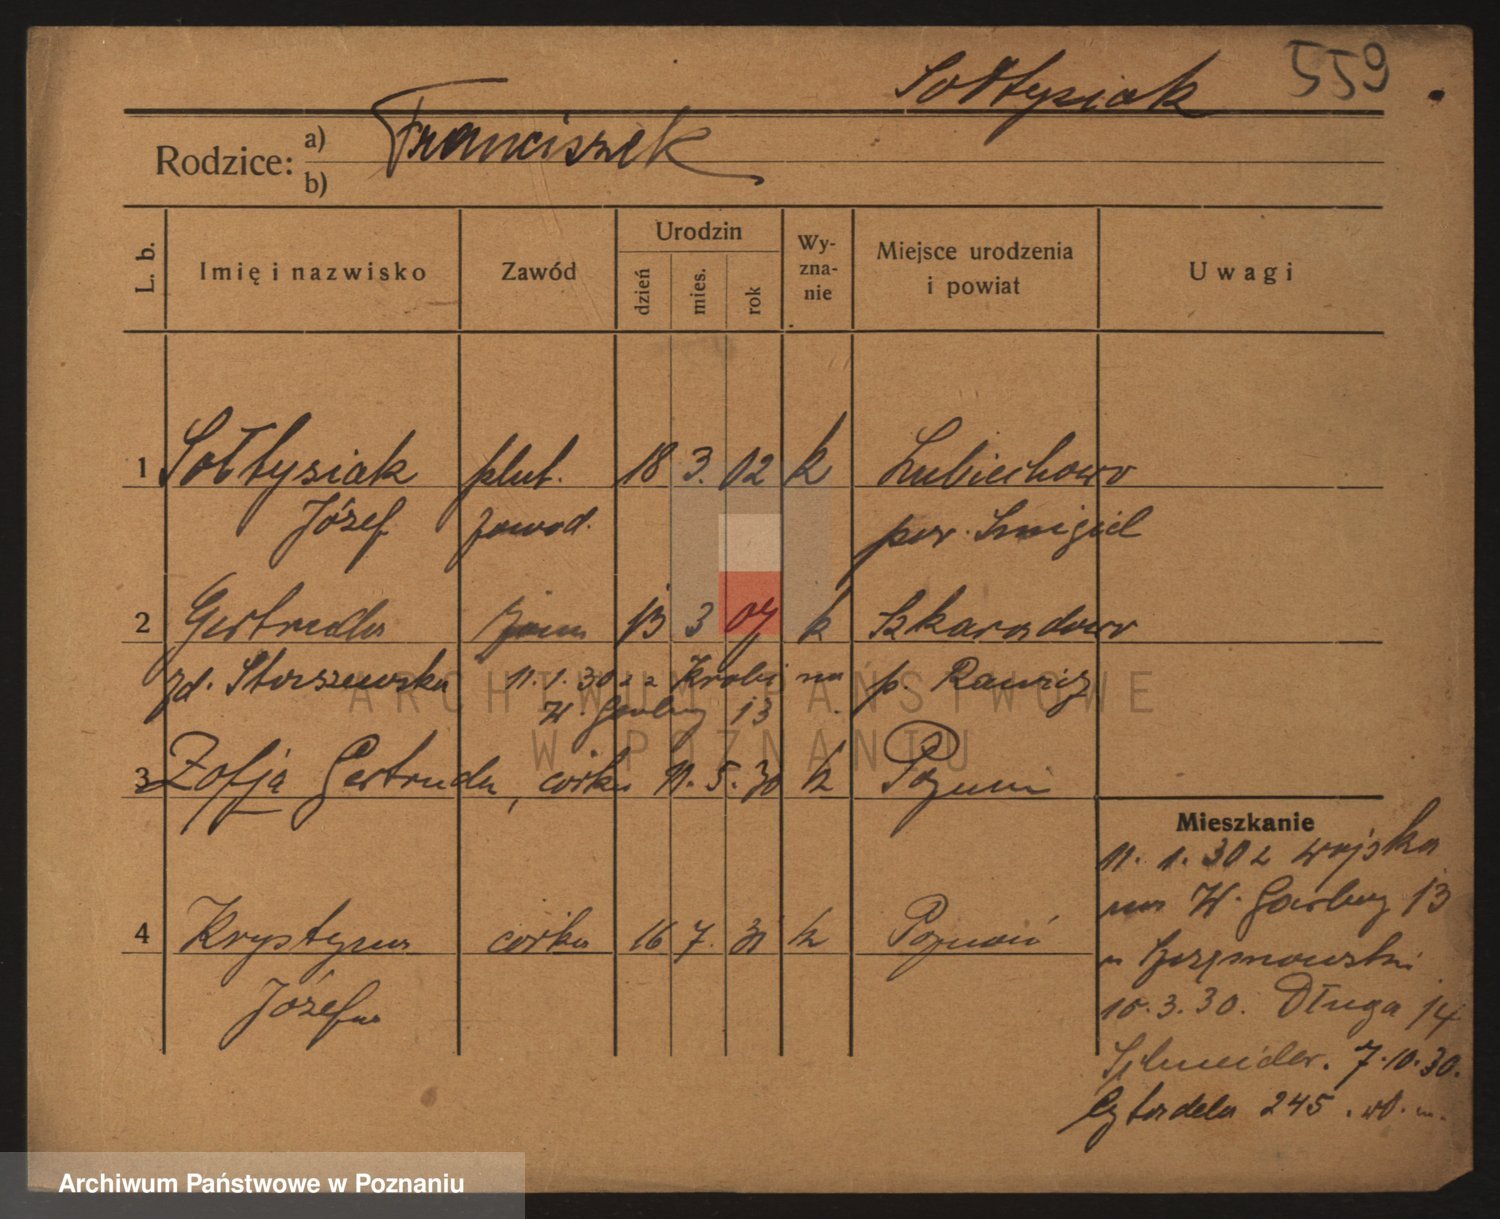 Sołtysiak 559
Rodzice: a) Franciszek
b)
L. b. Imię i nazwisko Zawód Urodzin dzień mies. rok Wy-zna-nie Miejsce urodzenia i powiat Uwagi
1 Sołtysiak plut. 18 3. 02 k Lubiechowo
Józef zawod. pow. Śmigiel
2 Gertruda żona 13 3 07 k Szkaradowo
zd. Staszewska 11.1.30 z Krobi na p. Rawicz
W. Garbary 13
3 Zofja Gertruda, córka 11. 5. 30 k Poznań
Mieszkanie
11. 1. 30 z wojska
na W. Garbary 13
4 Krystyna córka 16 7. 31 k Poznań
Józefa
15.3.30. Długa 14
Schneider. 7.10.30.
Cytadela 245.
ARCHIWUM PAŃSTWOWE
W POZNANIU
Archiwum Państwowe w Poznaniu